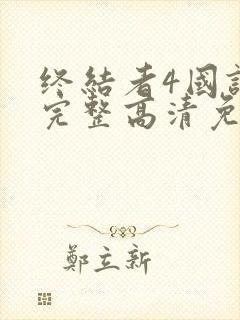 终结者4国
完整高清免
鄭立新